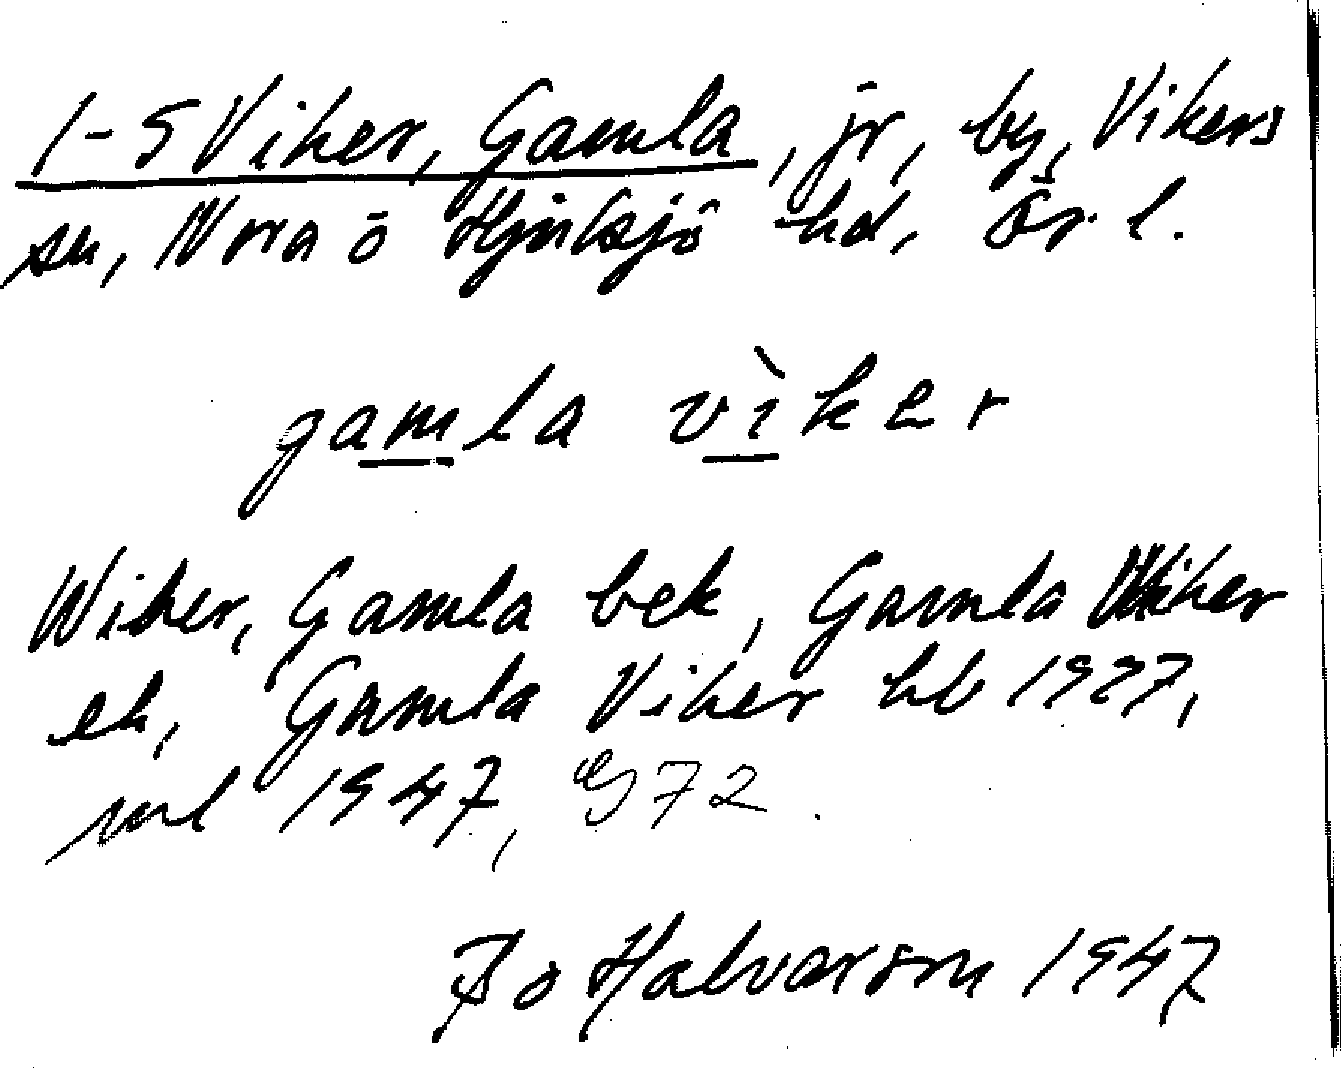 1-5 Viker, Gamla, jr, by, Vikers
sn, Nora o Hjulsjö hd, Ör. l.
gamla vìker
Wiker, Gamla bek, Gamla Wiker
ek, Gamla Viker hb 1937,
ml 1947, G72.
Bo Halvarson 1947